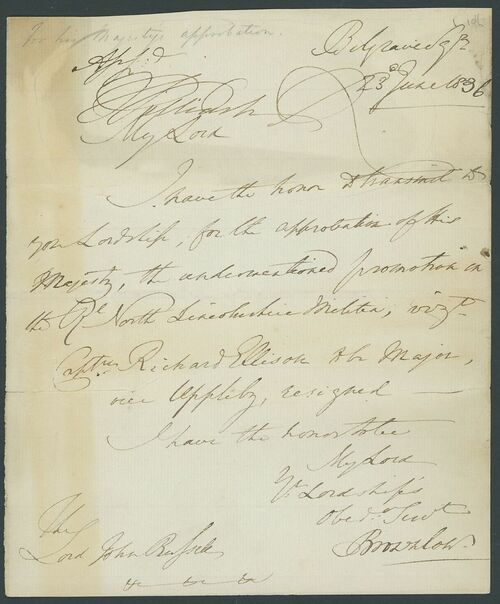 for his Majestys approbation.
Belgrave Sqre
23d June 1836
Appd
My Lord
I have the honor to transmit to
your Lordship, for the approbation of His
Majesty, the undermentioned promotion in
the Rl North Lincolnshire Militia, vizt
Captn Richard Ellison to be Major,
vice Appleby, resigned —
I have the honor to be
My Lord
Yr Lordship's
Obedt Servt
Brownlow.
The
Lord John Russell